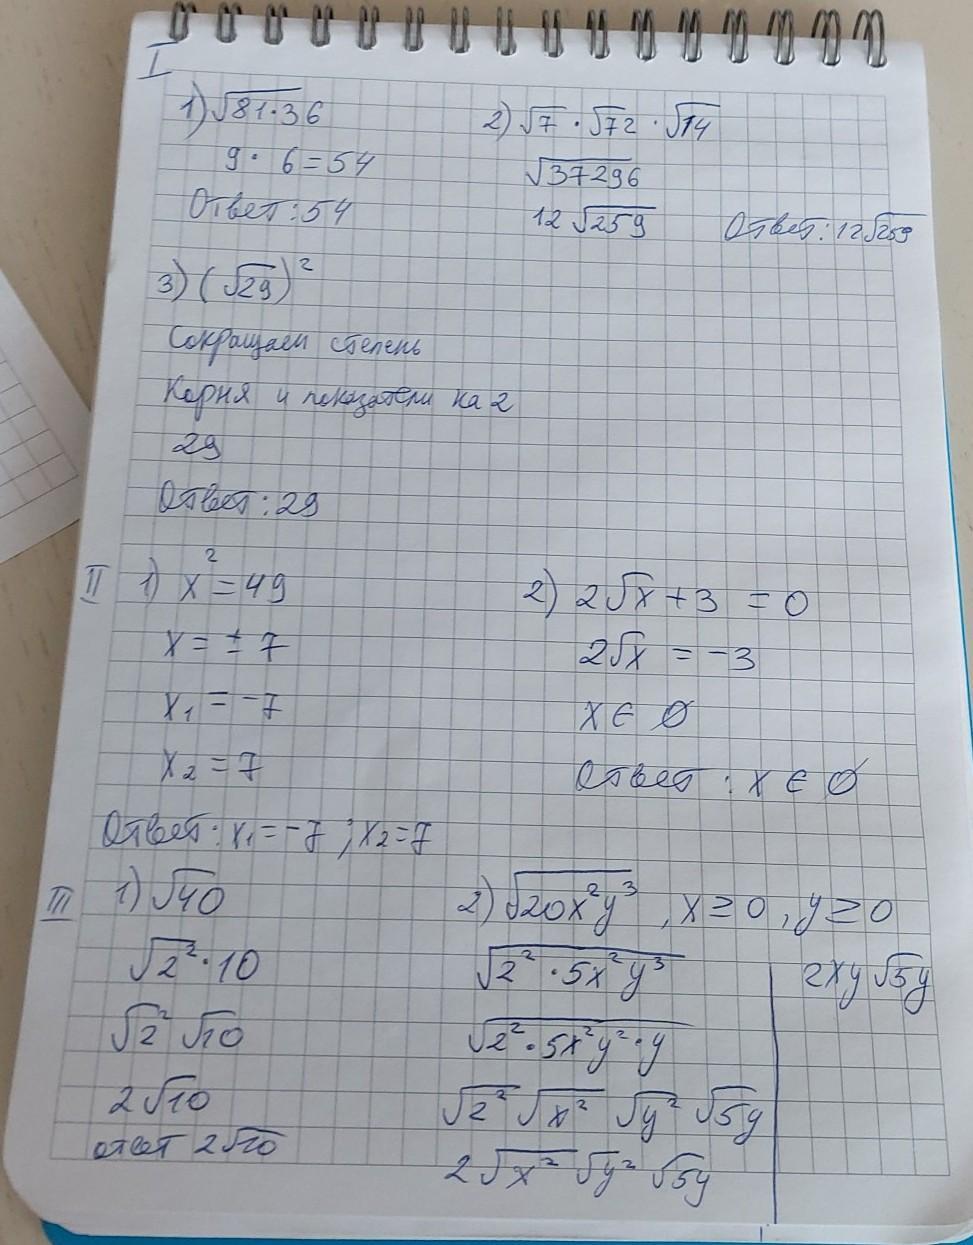 I
1) √81·36
9 · 6 = 54
Ответ: 54
2) √7 · √72 · √14
√37296
12 √259
Ответ: 12√259
3) (√29)²
Сокращаем степень
Корня и показатели на 2
29
Ответ: 29
II 1) x² = 49
x = ± 7
x₁ = -7
x₂ = 7
Ответ: x₁ = -7 ; x₂ = 7
2) 2√x + 3 = 0
2√x = -3
x ∈ ∅
Ответ : x ∈ ∅
III 1) √40
√2² · 10
√2² √10
2√10
ответ 2√10
2) √20x²y³ , x ≥ 0 , y ≥ 0
√2² · 5x²y³
√2² · 5x²y² · y
√2² √x² √y² √5y
2√x² √y² √5y
2xy √5y